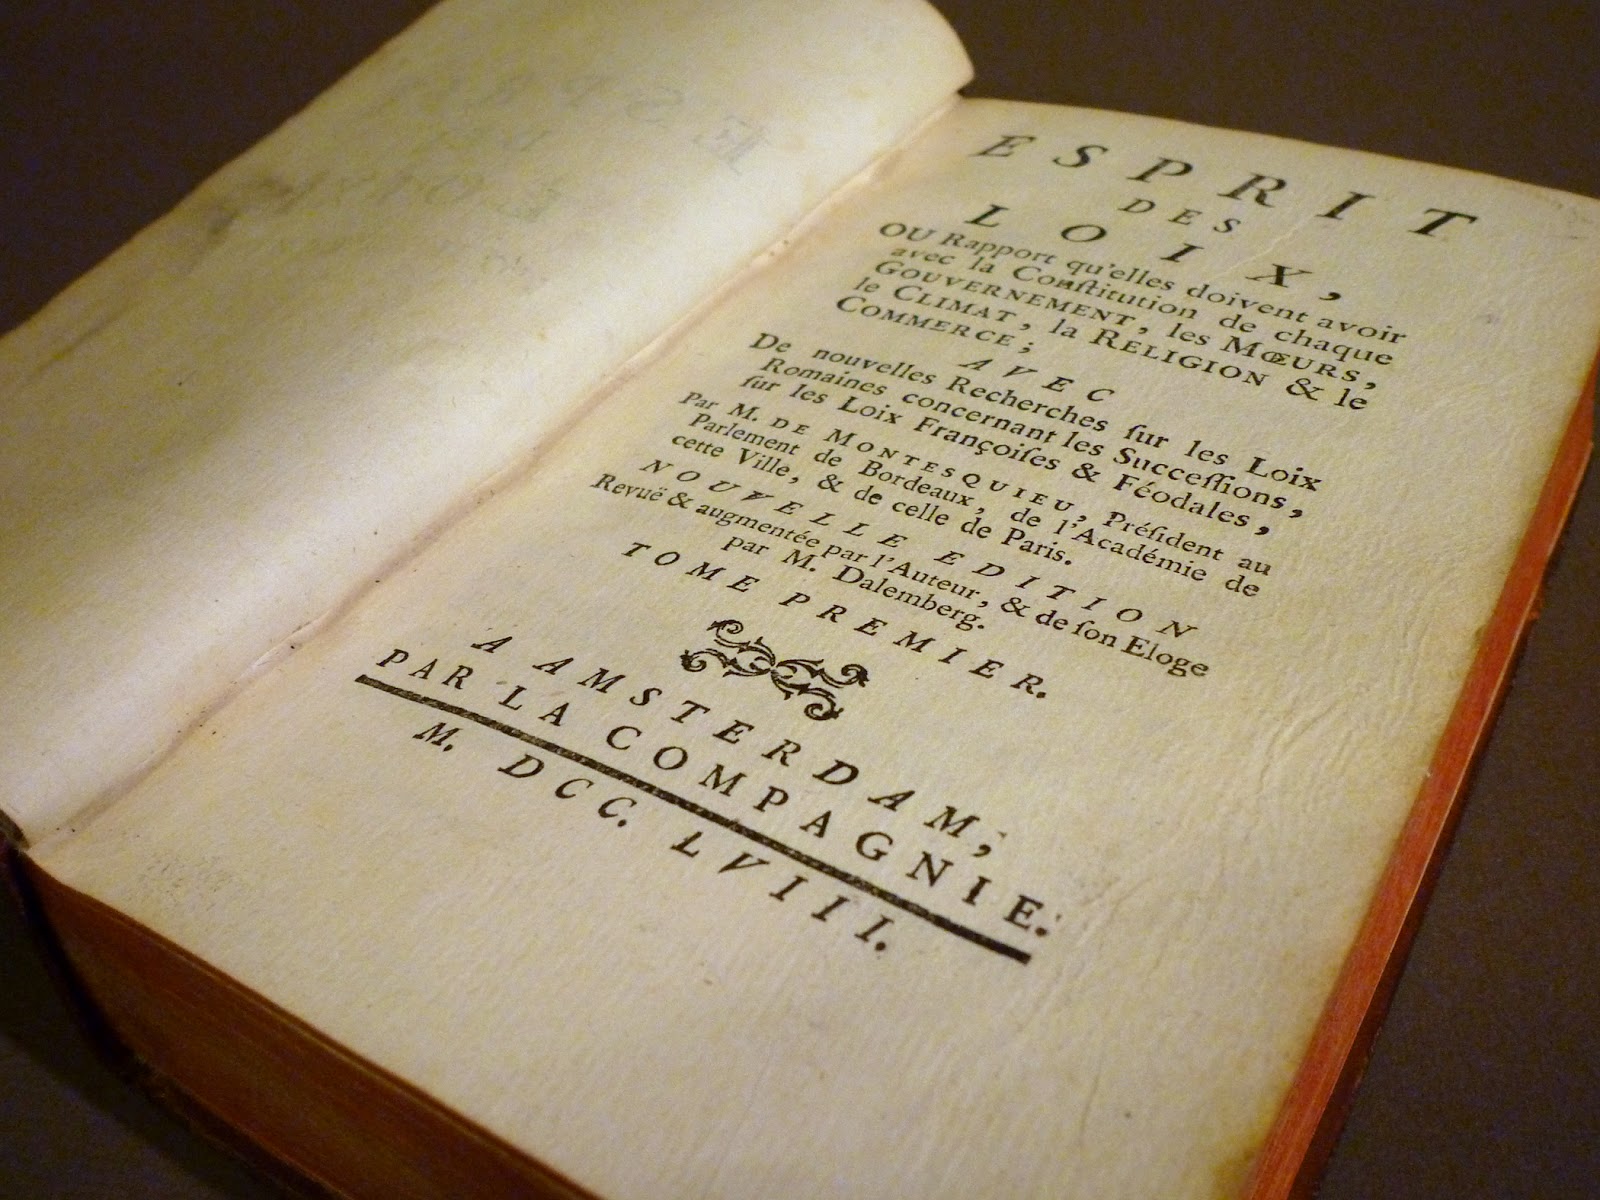 ESPRIT
DES
LOIX,
OU Rapport qu'elles doivent avoir
avec la Conſtitution de chaque
GOUVERNEMENT, les MŒURS,
le CLIMAT, la RELIGION & le
COMMERCE;
AVEC
De nouvelles Recherches ſur les Loix
Romaines concernant les Succeſſions,
ſur les Loix Françoiſes & Féodales,
Par M. DE MONTESQUIEU, Préſident au
Parlement de Bordeaux, de l'Académie de
cette Ville, & de celle de Paris.
NOUVELLE EDITION
Revuë & augmentée par l'Auteur, & de ſon Eloge
par M. Dalemberg.
TOME PREMIER.
A AMSTERDAM,
PAR LA COMPAGNIE.
M. DCC. LVIII.